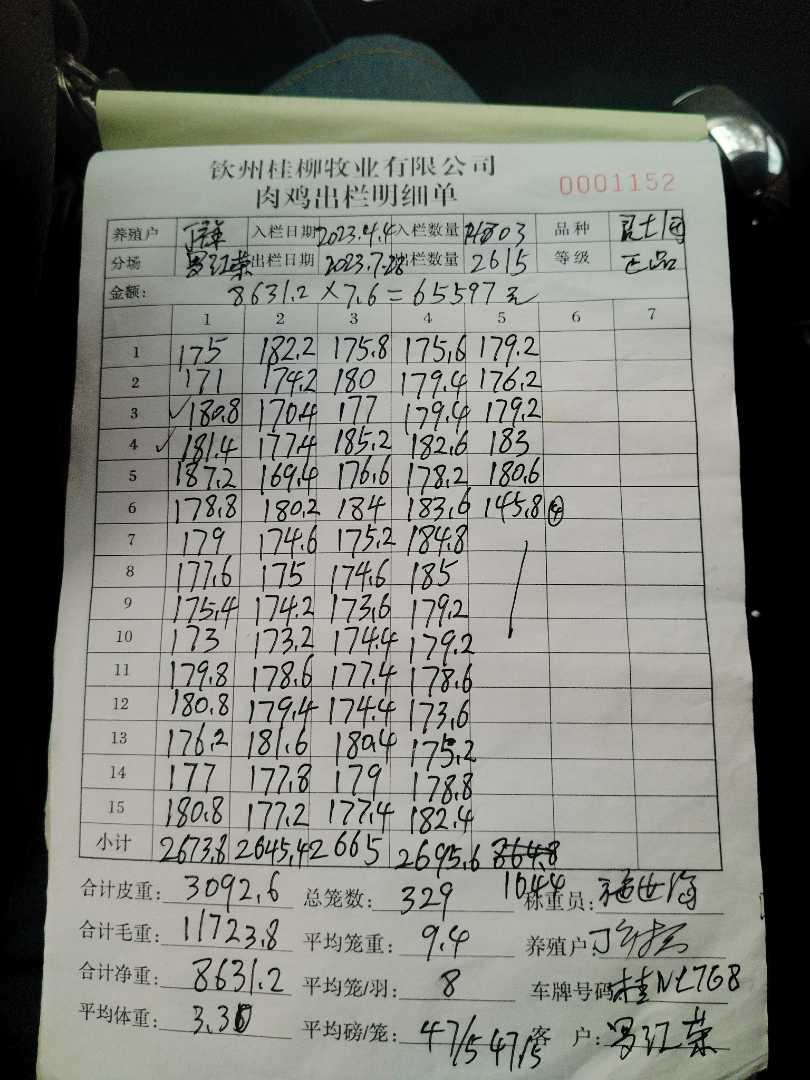 钦州桂柳牧业有限公司
肉鸡出栏明细单 0001152
养殖户 入栏日期 2023.4.4 入栏数量 品种
分场 罗江荣 出栏日期 2023.7.28 出栏数量 2615 等级 正品
金额: 8631.2×7.6=65597元
1 2 3 4 5 6 7
1 175 182.2 175.8 175.6 179.2
2 171 174.2 180 179.4 176.2
3 ✓180.8 170.4 177 179.4 179.2
4 ✓181.4 177.4 185.2 182.6 183
5 187.2 169.4 176.6 178.2 180.6
6 178.8 180.2 184 183.6 145.8 ④
7 179 174.6 175.2 184.8
8 177.6 175 174.6 185
9 175.4 174.2 173.6 179.2
10 173 173.2 174.4 179.2
11 179.8 178.6 177.4 178.6
12 180.8 179.4 174.4 173.6
13 176.2 181.6 180.4 175.2
14 177 177.8 179 178.8
15 180.8 177.2 177.4 182.4
小计 2673.8 2645.4 2665 2695.6 864.8
1044
合计皮重: 3092.6 总笼数: 329 称重员: 施世海
合计毛重: 11723.8 平均笼重: 9.4 养殖户:
合计净重: 8631.2 平均笼/羽: 8 车牌号码: 桂NL7G8
平均体重: 3.30 平均磅/笼: 47/5 47/5 客 户: 罗江荣